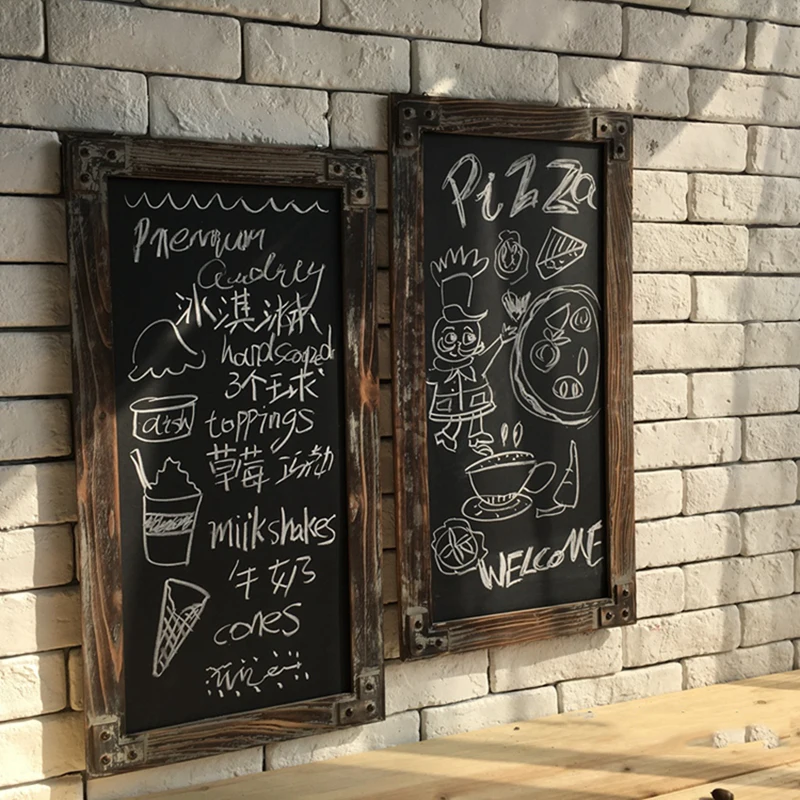 Premium
Audrey
冰淇淋
handscooped
3个全球
dish
toppings
草莓
miilkshakes
牛奶
cones
PiZZa
WELCOME